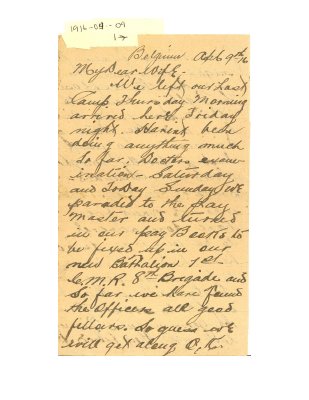 1916-04-09
1→
Belgium Apl 9th 16
My Dear Wife.
We left our last
Camp Thursday Morning
arrived here Friday
night. Havent been
doing anything much
so far. Doctors exam-
ination Saturday
and ToDay Sunday we
paraded to the Pay
Master and turned
in our pay Books to
be fixed up in our
new Battalion 1st
C.M.R. 8th Brigade and
so far we have found
the Officers all good
fellars. So guess we
will get along O.K.